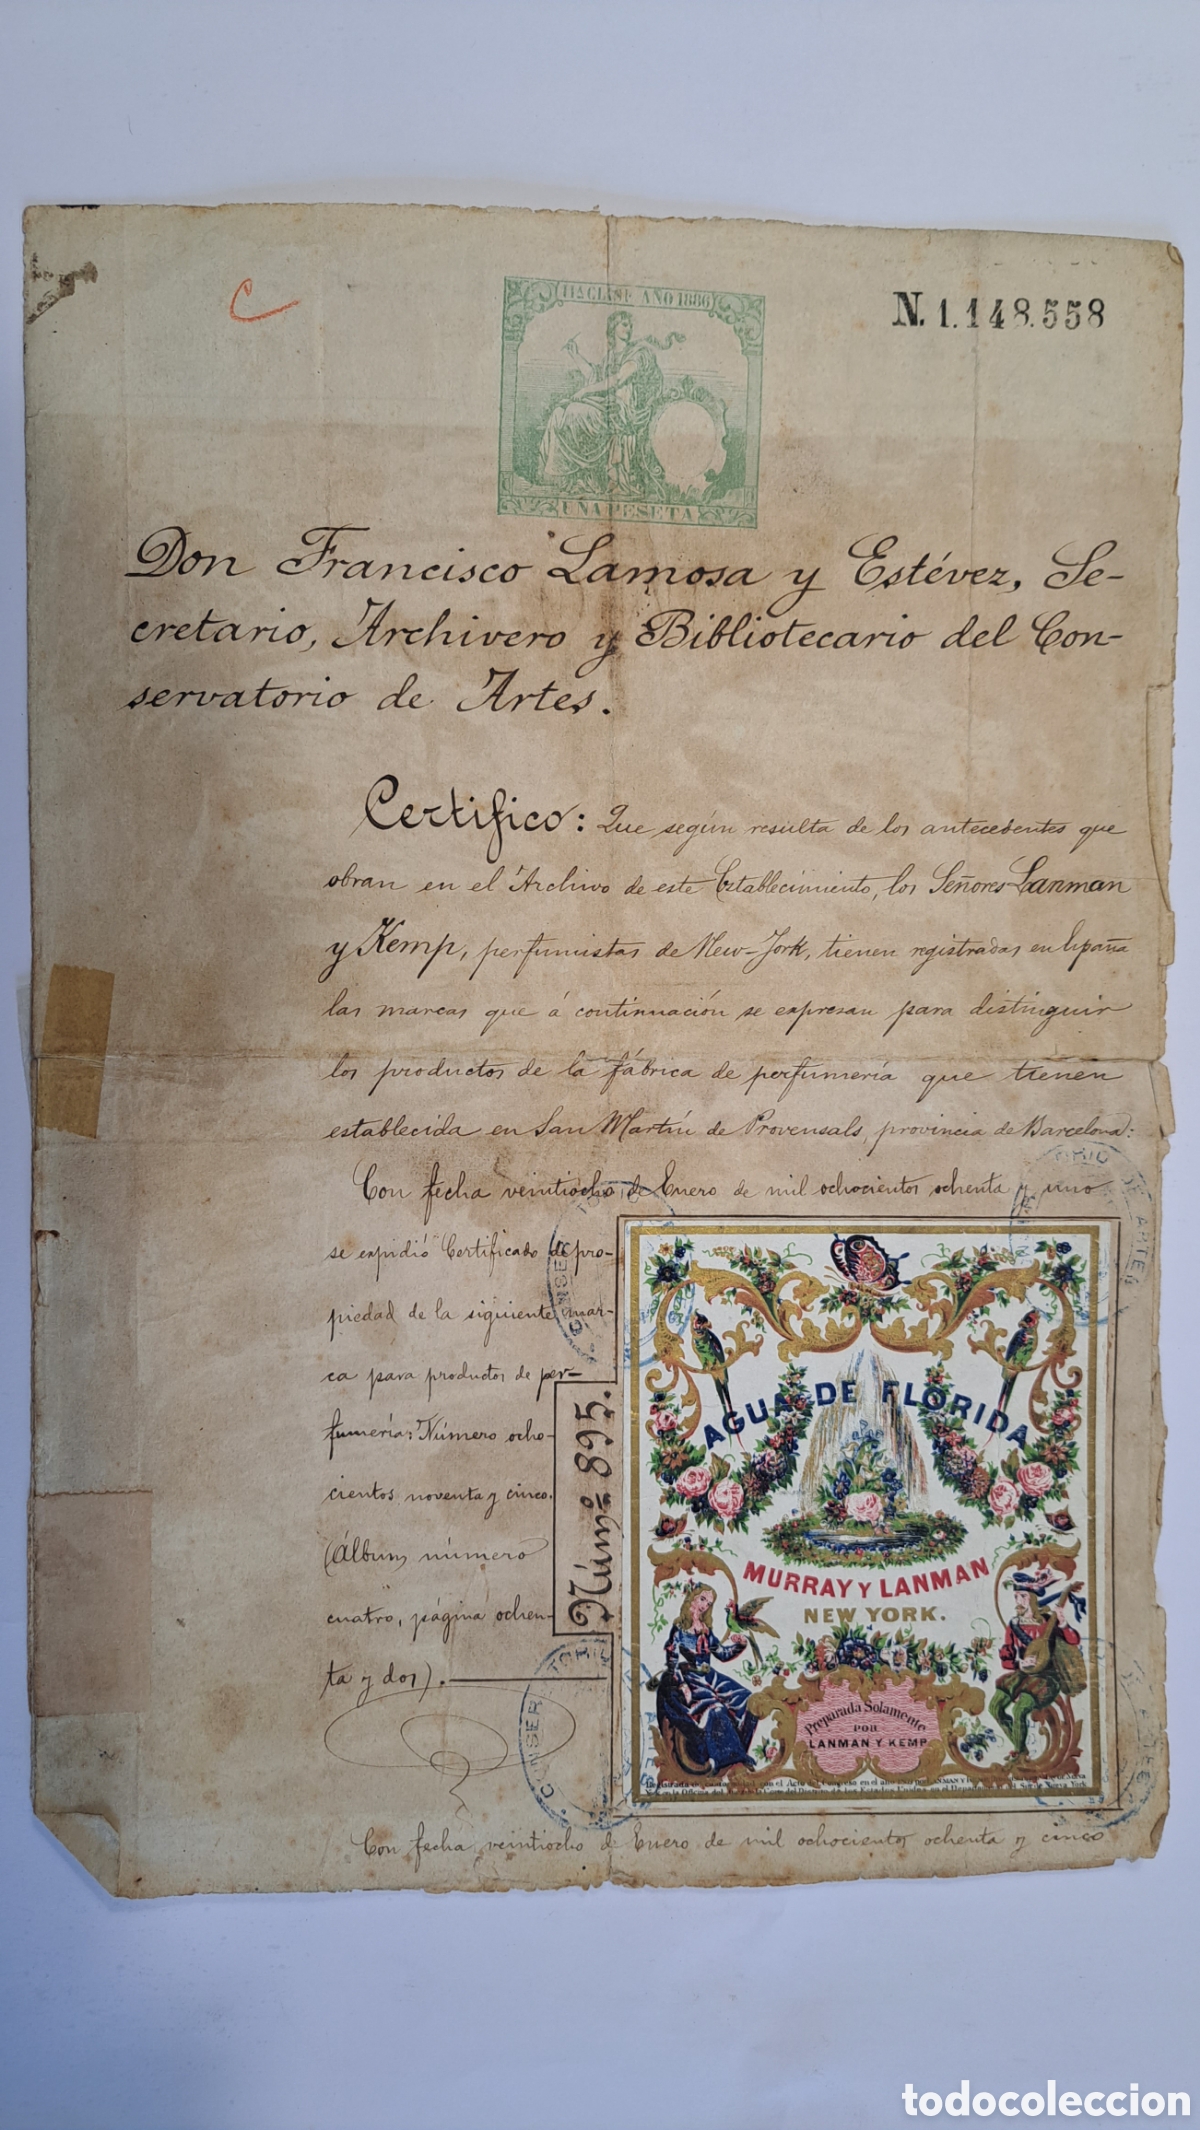 11ª CLASE AÑO 1886
N. 1.148.558
UNA PESETA
Don Francisco Lamosa y Estévez, Se-
cretario, Archivero y Bibliotecario del Con-
servatorio de Artes.
Certifico: Que según resulta de los antecedentes que
obran en el Archivo de este Establecimiento, los Señores Lanman
y Kemp, perfumistas de New-York, tienen registradas en España
las marcas que á continuación se expresan para distinguir
los productos de la fábrica de perfumería que tienen
establecida en San Martín de Provensals, provincia de Barcelona:
Con fecha veintiocho de Enero de mil ochocientos ochenta y uno
se expidió Certificado de pro-
piedad de la siguiente mar-
ca para productos de per-
fumería: Número ocho-
cientos noventa y cinco.
(Álbum número
cuatro, página ochen-
ta y dos).
Núm.º 895.
AGUA DE FLORIDA
MURRAY Y LANMAN
NEW YORK.
Preparada Solamente
POR
LANMAN Y KEMP
Con fecha veintiocho de Enero de mil ochocientos ochenta y cinco
todocoleccion